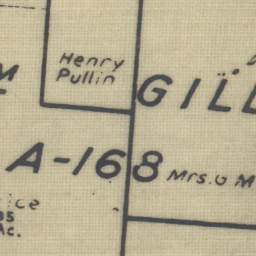 Henry
Pullin
GILL
A-168
Mrs. G M
ice